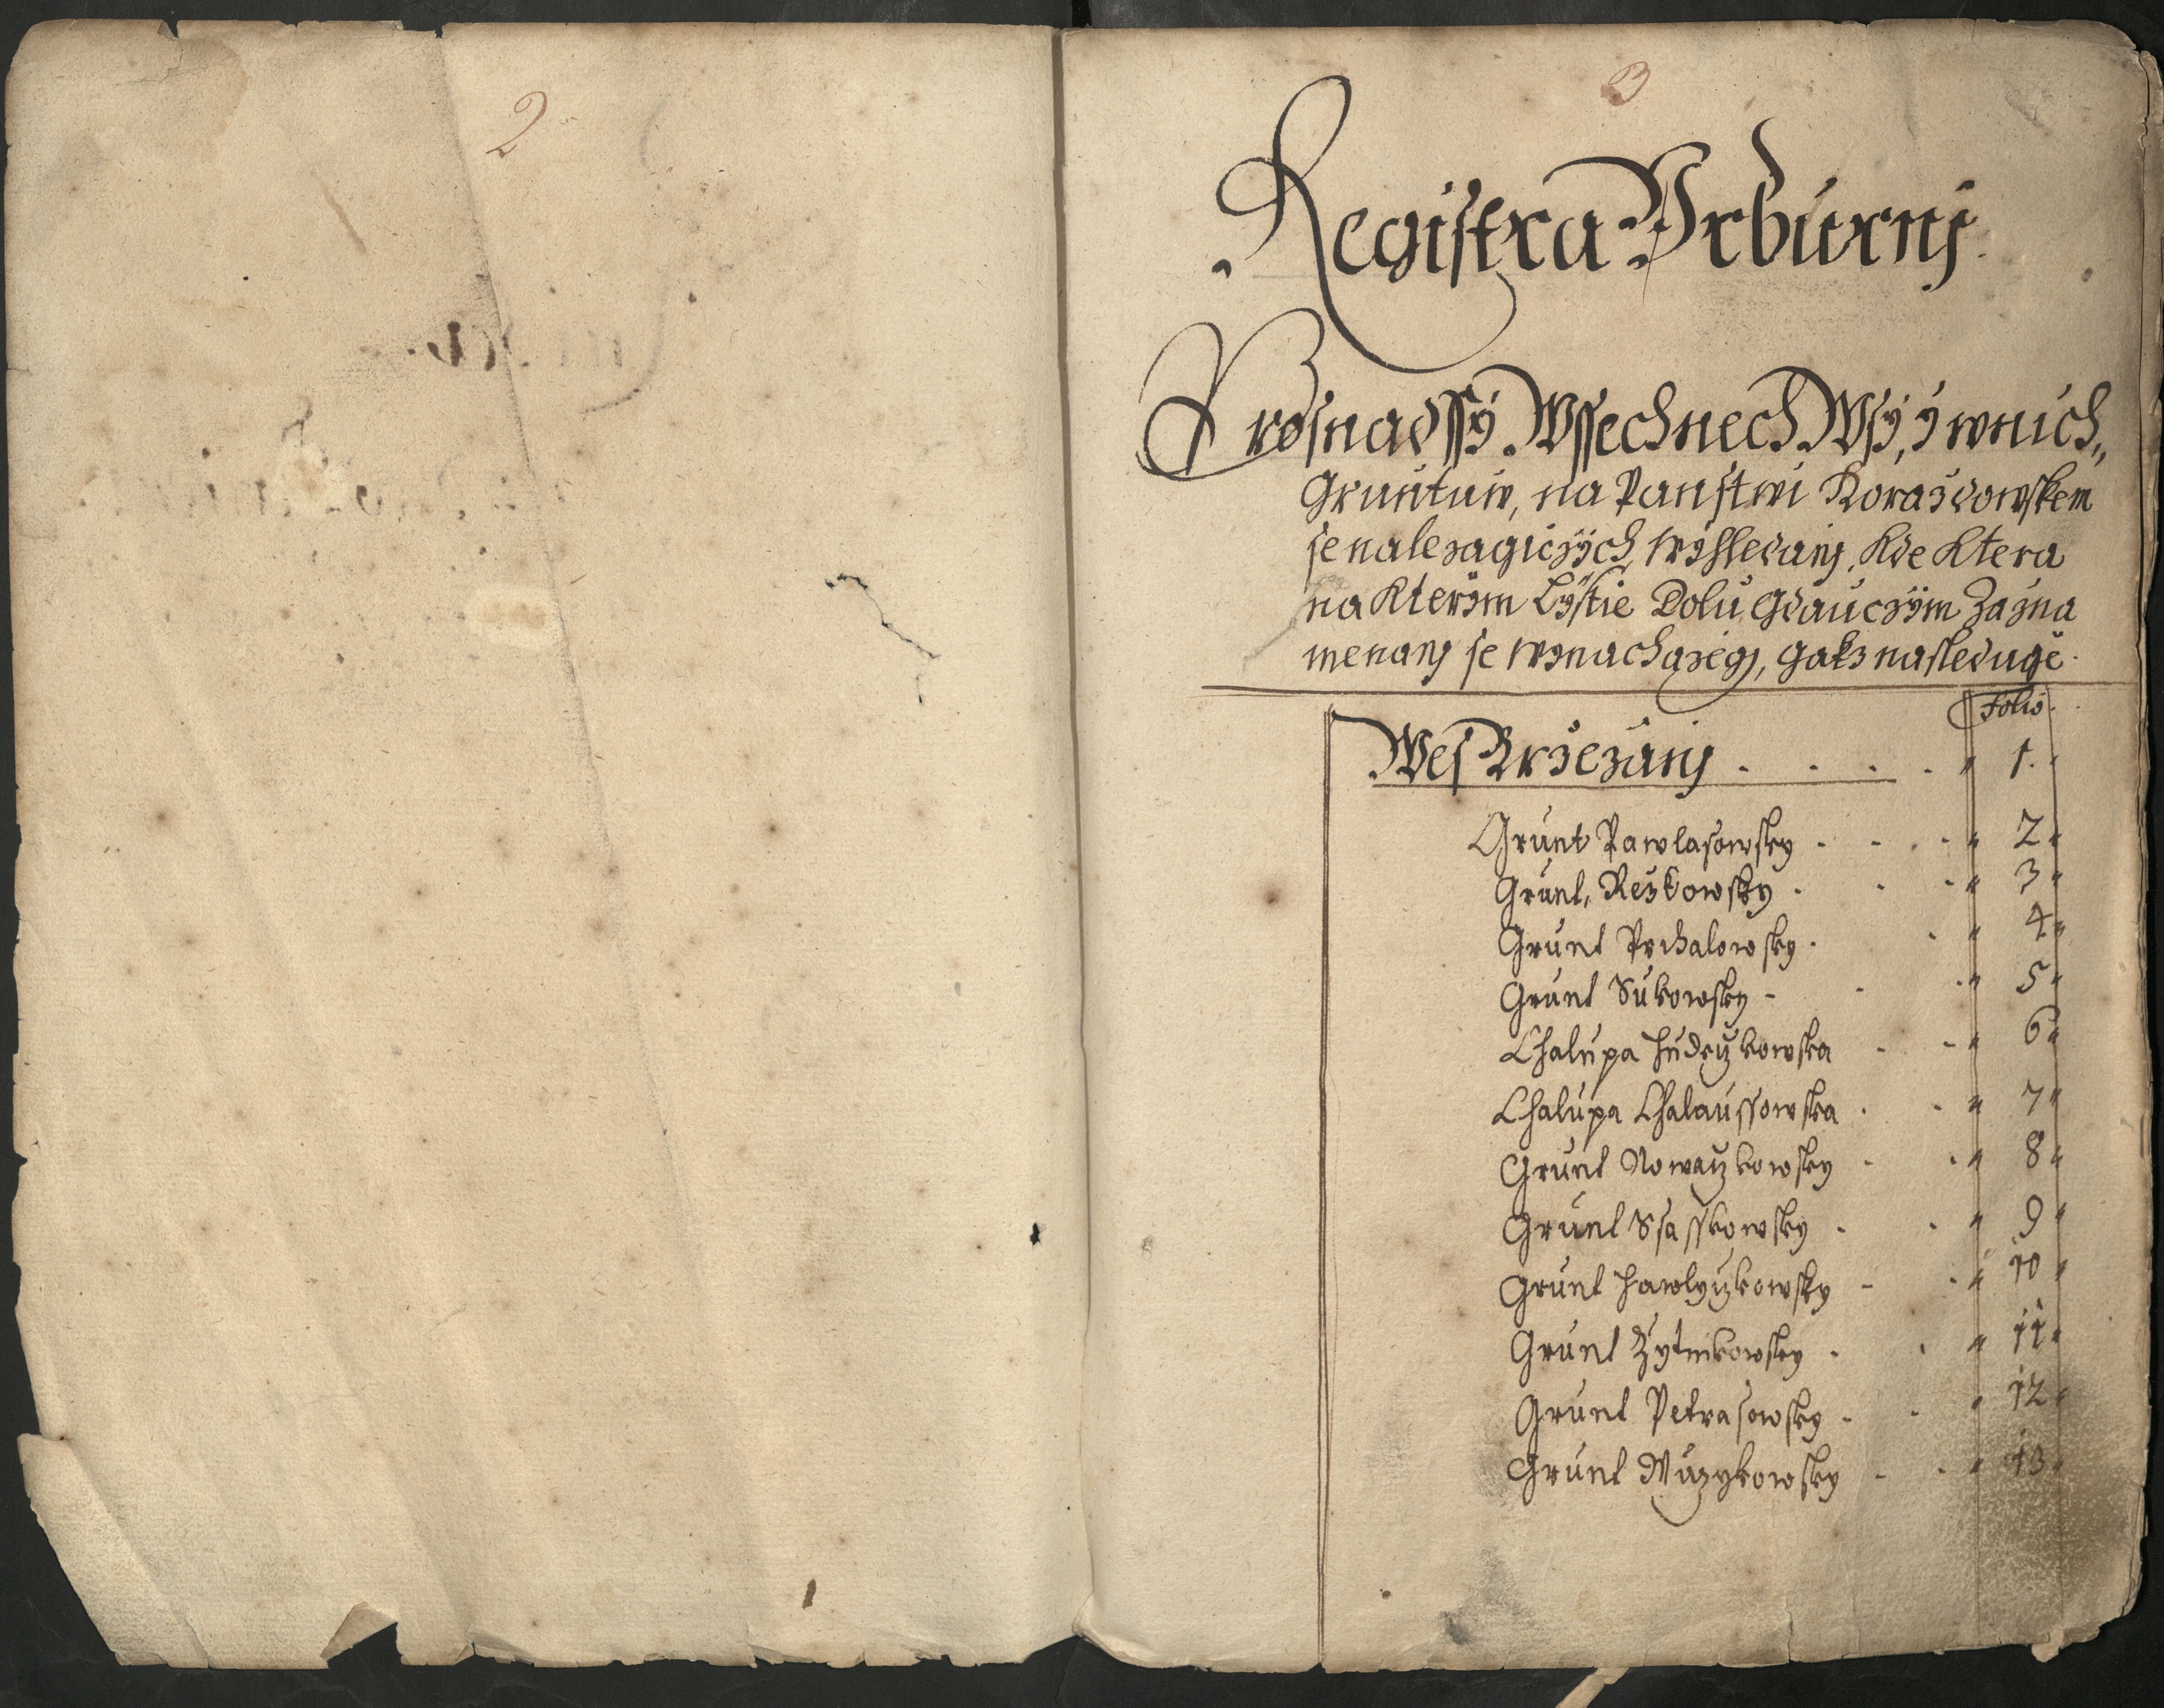 2
3
Registra Urburnj
Pro snadssÿ Wssechnech Wsÿ, ÿ wnich
Gruntuw, na Panstwi Horazdowskem
se nalezagiczÿch wÿhledanj, Kde Ktera
na Kterÿm Lÿstie Dolu Gdauczÿm Zazna
menanj se wynachazegj, gakz nasleduge.
Folio
Wes Brzezanj . . . . 1.
Grunt Pawlasowsky . . . 2
Grunt Rezkowsky . . . 3
Grunt Prchalowsky . . 4
Grunt Sukowsky . . . 5
Chalupa Hudeczkowska . . 6
Chalupa Chalaussowska . . 7
Grunt Nowaczkowsky . . 8
Grunt Ssasskowsky . . 9
Grunt Hawlyczkowsky . . 10
Grunt Zytnikowsky . . 11
Grunt Petrasowsky . . 12
Grunt Muzykowsky . . 13